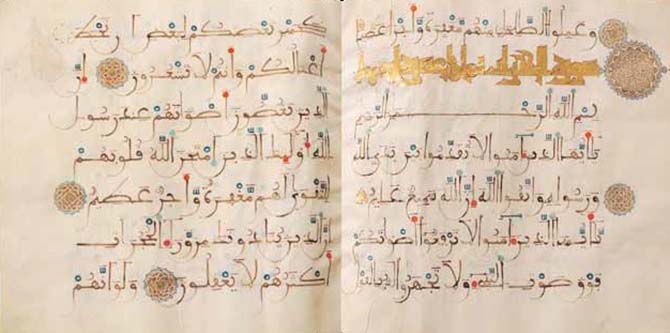 وعملوا الصلحت منهم مغفرة وأجرا عظيما
سورة الحجرات
بسم الله الرحمن الرحيم
يأيها الذين ءامنوا لا تقدموا بين يدي الله
ورسوله واتقوا الله إن الله سميع عليم
يأيها الذين ءامنوا لا ترفعوا أصواتكم
فوق صوت النبي ولا تجهروا له بالقول
كجهر بعضكم لبعض أن تحبط
أعملكم وأنتم لا تشعرون إن
الذين يغضون أصوتهم عند رسول
الله أولئك الذين امتحن الله قلوبهم
للتقوى لهم مغفرة وأجر عظيم
إن الذين ينادونك من وراء الحجرات
أكثرهم لا يعقلون ولو أنهم